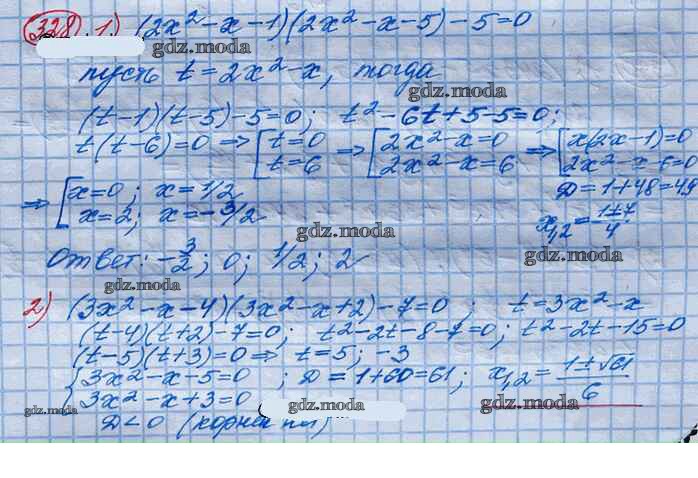 328. 1) (2x² - x - 1)(2x² - x - 5) - 5 = 0
gdz.moda
пусть t = 2x² - x, тогда
gdz.moda
(t - 1)(t - 5) - 5 = 0; t² - 6t + 5 - 5 = 0;
t(t - 6) = 0 => [t = 0 => [2x² - x = 0 => [x(2x - 1) = 0
t = 6 2x² - x = 6 2x² - x - 6 = 0
gdz.moda gdz.moda
=> [x = 0; x = 1/2 D = 1 + 48 = 49
x = 2; x = -3/2 x1,2 = (1 ± 7)/4
gdz.moda
Ответ: -3/2; 0; 1/2; 2
gdz.moda gdz.moda
2) (3x² - x - 4)(3x² - x + 2) - 7 = 0; t = 3x² - x
(t - 4)(t + 2) - 7 = 0; t² - 2t - 8 - 7 = 0; t² - 2t - 15 = 0
(t - 5)(t + 3) = 0 => t = 5; -3
{3x² - x - 5 = 0; D = 1 + 60 = 61; x1,2 = (1 ± √61)/6
3x² - x + 3 = 0
gdz.moda gdz.moda gdz.moda
D < 0 (корней
gdz.moda